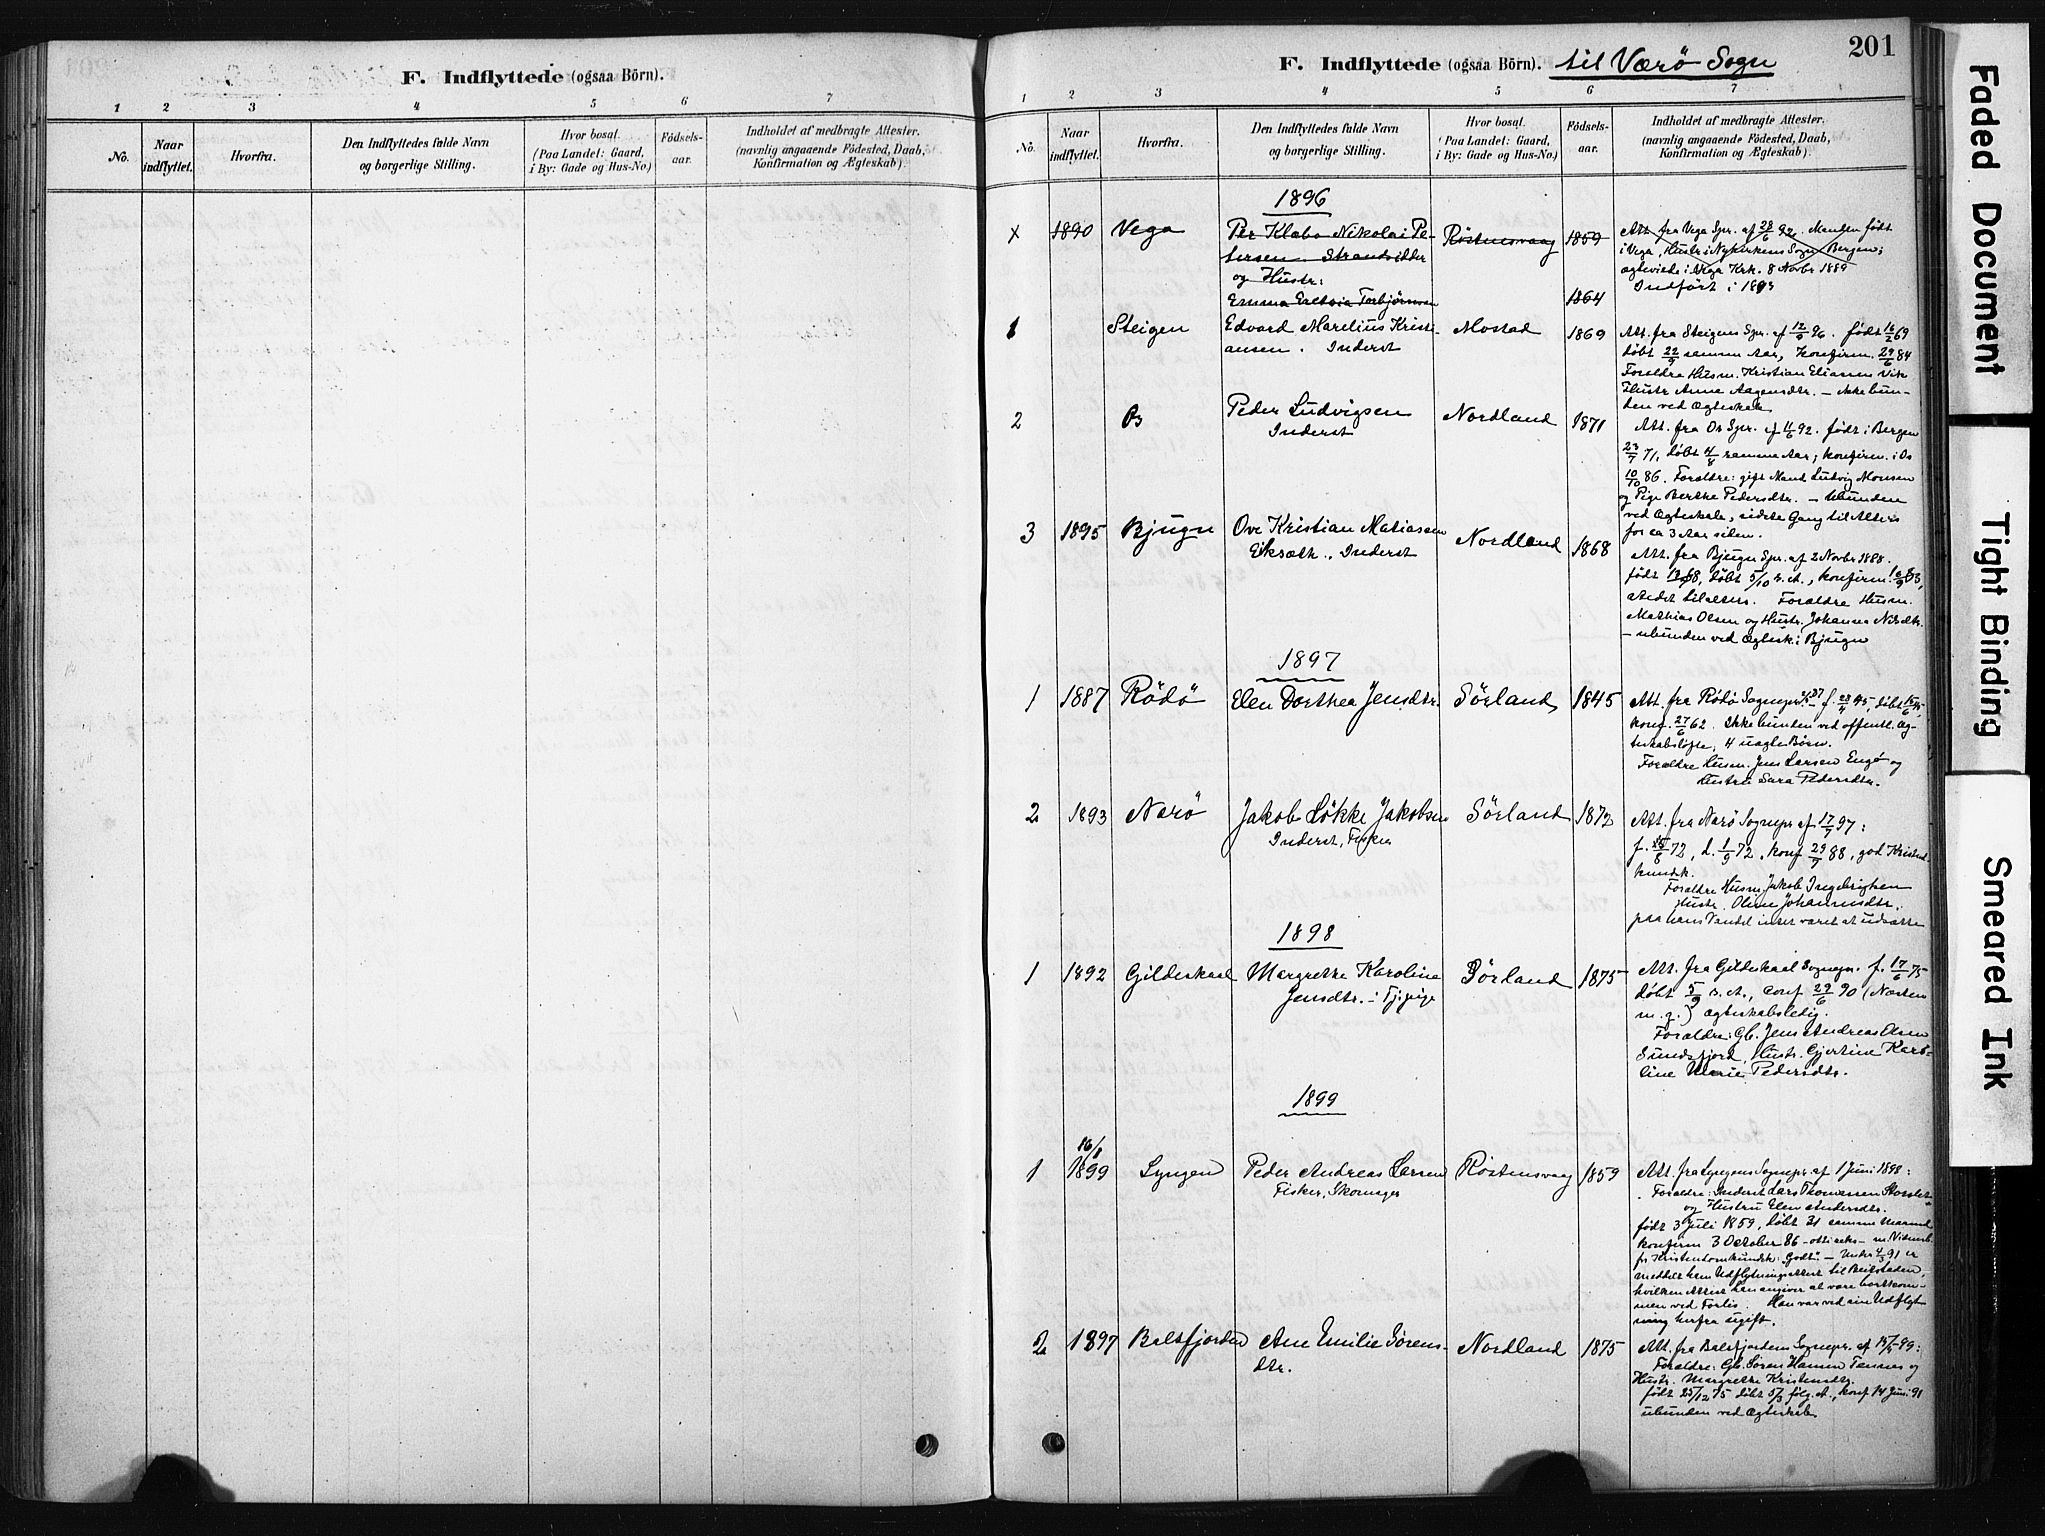 F. Indflyttede (ogsaa Börn).
1 2 3 4 5 6 7
No.
Naar indflyttet.
Hvorfra.
Den Indflyttedes fulde Navn og borgerlige Stilling.
Hvor bosat. (Paa Landet: Gaard, i By: Gade og Hus-No.)
Födsels-aar.
Indholdet af medbragte Attester. (navnlig angaaende Födested, Daab, Konfirmation og Ægteskab).
201
F. Indflyttede (ogsaa Börn). til Værö Sogn
1 2 3 4 5 6 7
No.
Naar indflyttet.
Hvorfra.
Den Indflyttedes fulde Navn og borgerlige Stilling.
Hvor bosat. (Paa Landet: Gaard, i By: Gade og Hus-No.)
Födsels-aar.
Indholdet af medbragte Attester. (navnlig angaaende Födested, Daab, Konfirmation og Ægteskab).
1896
x 1890 Vega Per Klæbo Nikolai Pe- Røstnesvaag 1859
tersen. Strandsidder
og Hustr:
Emma Torbjørnsen 1864
Att. fra Vega Spr. af 28/6 92. Manden født
i Vega, Hustr i Nykirkens Sogn Bergen;
ægteviede i Vega Krk. 8 Novbr 1889
Indført i 1893
1 Steigen Edvard Marelius Kristi- Mostad 1869
ansen. Inderst
Att. fra Steigens Spr. af 12/9 96. født 12/2 69
døbt 22/9 samme Aar, Konfirm. 29/6 84
Forældre Husm. Kristian Eliassen Vik
Hustr Anne Aagensdtr. – ikke bun-
den ved Ægteskab
2 Os Peder Ludvigsen Nordland 1871
Inderst
Att. fra Os Spr. af 11/6 92. født i Bergen
23/7 71, døbt 4/8 samme Aar, konfirm. i Os
10/10 86. Forældre: gift Mand Ludvig Monsen
og Pige Berthe Pedersdtr. – ubunden
ved Ægteskab, sidste Gang til Alters
for ca 3 Aar siden.
3 1895 Bjugn Ove Kristian Matiassen Nordland 1868
Eksæth., Inderst
Att. fra Bjugn Spr. af 2 Novbr 1888.
døbt 5/10 s. A., konfirm.
Forældre Husm.
Mathias Olsen og Hustr. Johanna Nilsdtr.
– ubunden ved Ægtesk. i Bjugn
1897
1 1887 Rödö Elen Dorthea Jensdtr. Sörland 1845
Att. fra Rödö Sognepr. f. 23/4 45, døbt 15/6
konf. 27/6 62. Ikke bunden ved offentl. Æg-
teskabsløfte, 4 uægte Børn.
Forældre Husm. Jens Larsen Engø og
Hustru Sara Pedersdtr.
2 1893 Narö Jakob Løkke Jakobsen Sörland 1872
Inderst, Fisker
Att. fra Narö Sognepr af 17/7 97:
f. 15/8 72, d. 1/9 72, konf 29/7 88, god Kristend.
kundsk.
Forældre Husm. Jakob Ingebrigtsen
Hustr. Oline Johannesdtr.
paa hans Vandel intet været at udsætte
1898
1 1892 Gildeskaal Margrethe Karoline Sörland 1875
Jensdtr. – Tj.pige
Att. fra Gildeskaal Sognepr. f. 17/6 75
døbt 5/9 s. A., conf 29/6 90 (Næsten
m. g.) Ægteskabsledig.
Forældre: Gb. Jens Andreas Olsen
Sundsfjord, Hustr. Gjertine Karo-
line Marie Pedersdtr.
1899
16/1
1 1899 Lyngen Peder Andreas Larsen Røstnesvaag 1859
Fisker, Skomager
Att. fra Lyngens Sognepr. af 1 Juni 1898:
Forældre: Inderst Lars Thomassen Storslet
og Hustru Elen Andersdtr.
født 3 Juli 1859, døbt 31 samme Maaned
konfirm 3 October 86
for Kristendomskundsk: Godt – Under 4/3 91 er
meddelt ham Udflytningsattest til Beistaden,
hvilken Attest han angiver at være bortkom-
men ved Forlis. Han var ved sin Udflyt-
ning herfra ugift.
2 1897 Balsfjorden Ane Emilie Sörens- Nordland 1875
dtr.
Att. fra Balsfjordens Sognepr. af 15/5 99:
Forældre: Gb. Søren Hansen Tennes og
Hustr. Margrethe Kristensdtr.
født 25/12 75 døbt 5/3 følg. A., konf 14 Juni 91
ubunden ved Ægteskab
Faded Document
Tight Binding
Smeared Ink